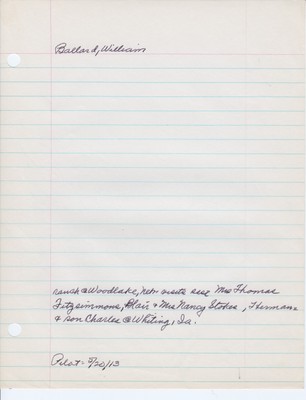 Ballard, William
ranch @ Woodlake, Nebr. visits sese Mrs Thomas
Fitzsimmons, Blair & Mrs Nancy Stokes, Herman
& son Charles @ Whiting, Ia.
Pilot - 5/20/13